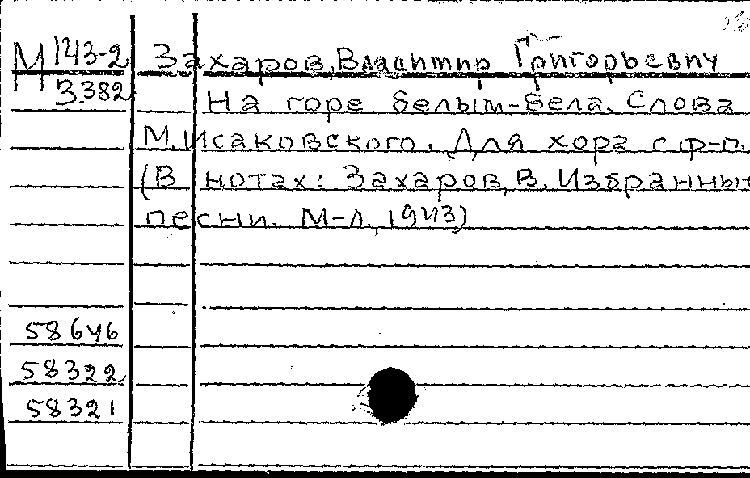 М 143-2 Захаров, Владимир Григорьевич
3382 На горе белым-бела. Слова
М. Исаковского. Для хора с ф-п.
(В нотах: Захаров, В. Избранны
песни. М-Л, 1943)
58646
58322
58321